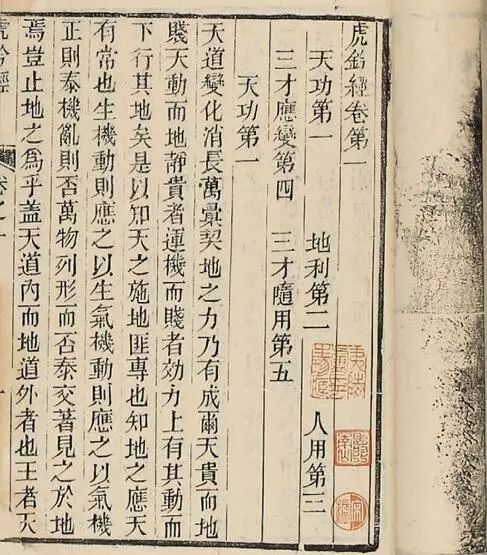 虎鈐經卷第一
天功第一 地利第二 人用第三
三才應變第四 三才隨用第五
天功第一
天道變化消長萬彙契地之力乃有成爾天貴而地
賤天動而地靜貴者運機而賤者効力上有其動而
下行其地矣是以知天之施地匪專也知地之應天
有常也生機動則應之以生氣機動則應之以氣機
正則泰機亂則否萬物列形而否泰交著見之於地
焉豈止地之爲乎蓋天道內而地道外者也王者天
虎鈐經